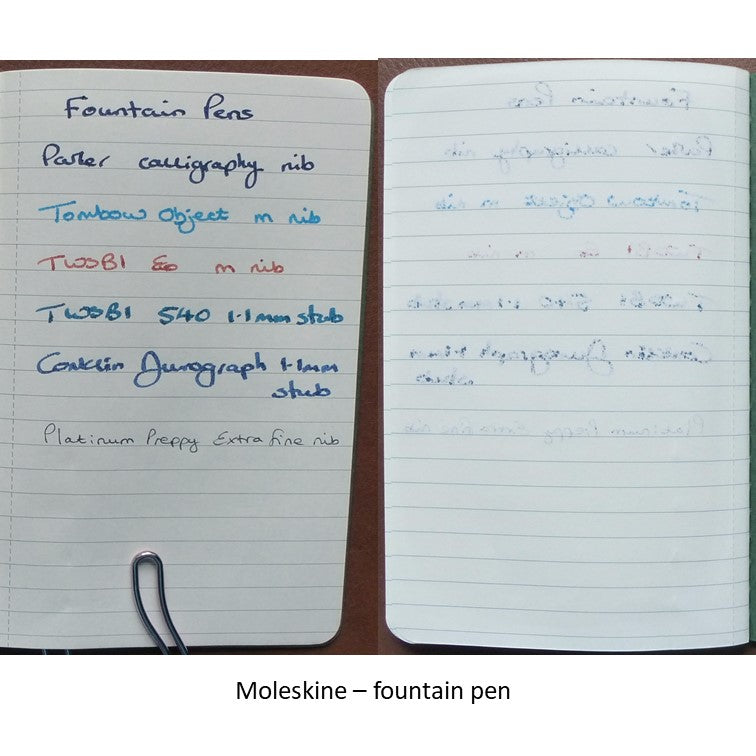 Fountain Pens
Parker calligraphy nib
Tombow Object m nib
TWSBI Eco m nib
TWSBI 540 1.1mm stub
Conklin Duragraph 1.1mm
stub
Platinum Preppy Extra fine nib
Moleskine – fountain pen